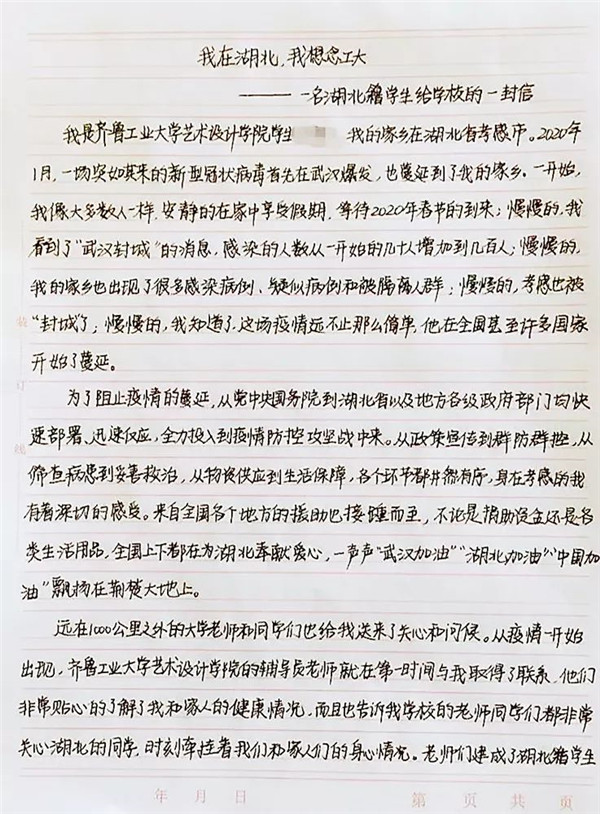 我在湖北，我想念工大
———一名湖北籍学生给学校的一封信
我是齐鲁工业大学艺术设计学院学生 我的家乡在湖北省孝感市。2020年
1月，一场突如其来的新型冠状病毒首先在武汉爆发，也蔓延到了我的家乡。一开始，
我像大多数人一样，安静的在家中享受假期，等待2020年春节的到来；慢慢的，我
看到了“武汉封城”的消息，感染的人数从一开始的几十人增加到几百人；慢慢的，
我的家乡也出现了很多感染病例、疑似病例和被隔离人群；慢慢的，孝感也被
“封城”了；慢慢的，我知道了，这场疫情远不止那么简单，他在全国甚至许多国家
开始了蔓延。
为了阻止疫情的蔓延，从党中央国务院到湖北省以及地方各级政府部门均快
速部署、迅速反应，全力投入到疫情防控攻坚战中来。从政策宣传到群防群控，从
筛查病患到妥善救治，从物资供应到生活保障，各个环节都井然有序，身在孝感的我
有着深切的感受。来自全国各个地方的援助也接踵而至，不论是捐助资金还是各
类生活用品，全国上下都在为湖北奉献爱心，一声声“武汉加油”“湖北加油”“中国加
油”飘扬在荆楚大地上。
远在1000公里之外的大学老师和同学们也给我送来了关心和问候。从疫情一开始
出现，齐鲁工业大学艺术设计学院的辅导员老师就在第一时间与我取得了联系，他们
非常贴心的了解了我和家人的健康情况，而且也告诉我学校的老师同学们都非常
关心湖北的同学，时刻牵挂着我们和家人们的身心情况。老师们建成了湖北籍学生
装
订
线
年 月 日
第 页 共 页